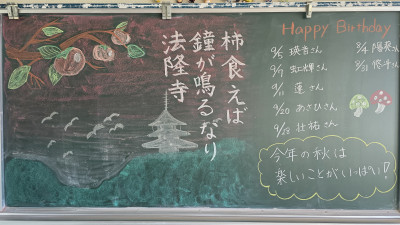 柿食えば
鐘が鳴るなり
法隆寺
Happy Birthday
9/5 瑛音さん
9/7 虹輝さん
9/11 蓮さん
9/20 あさひさん
9/28 壮祐さん
さん
さん
今年の秋は
楽しいことがいっぱい!